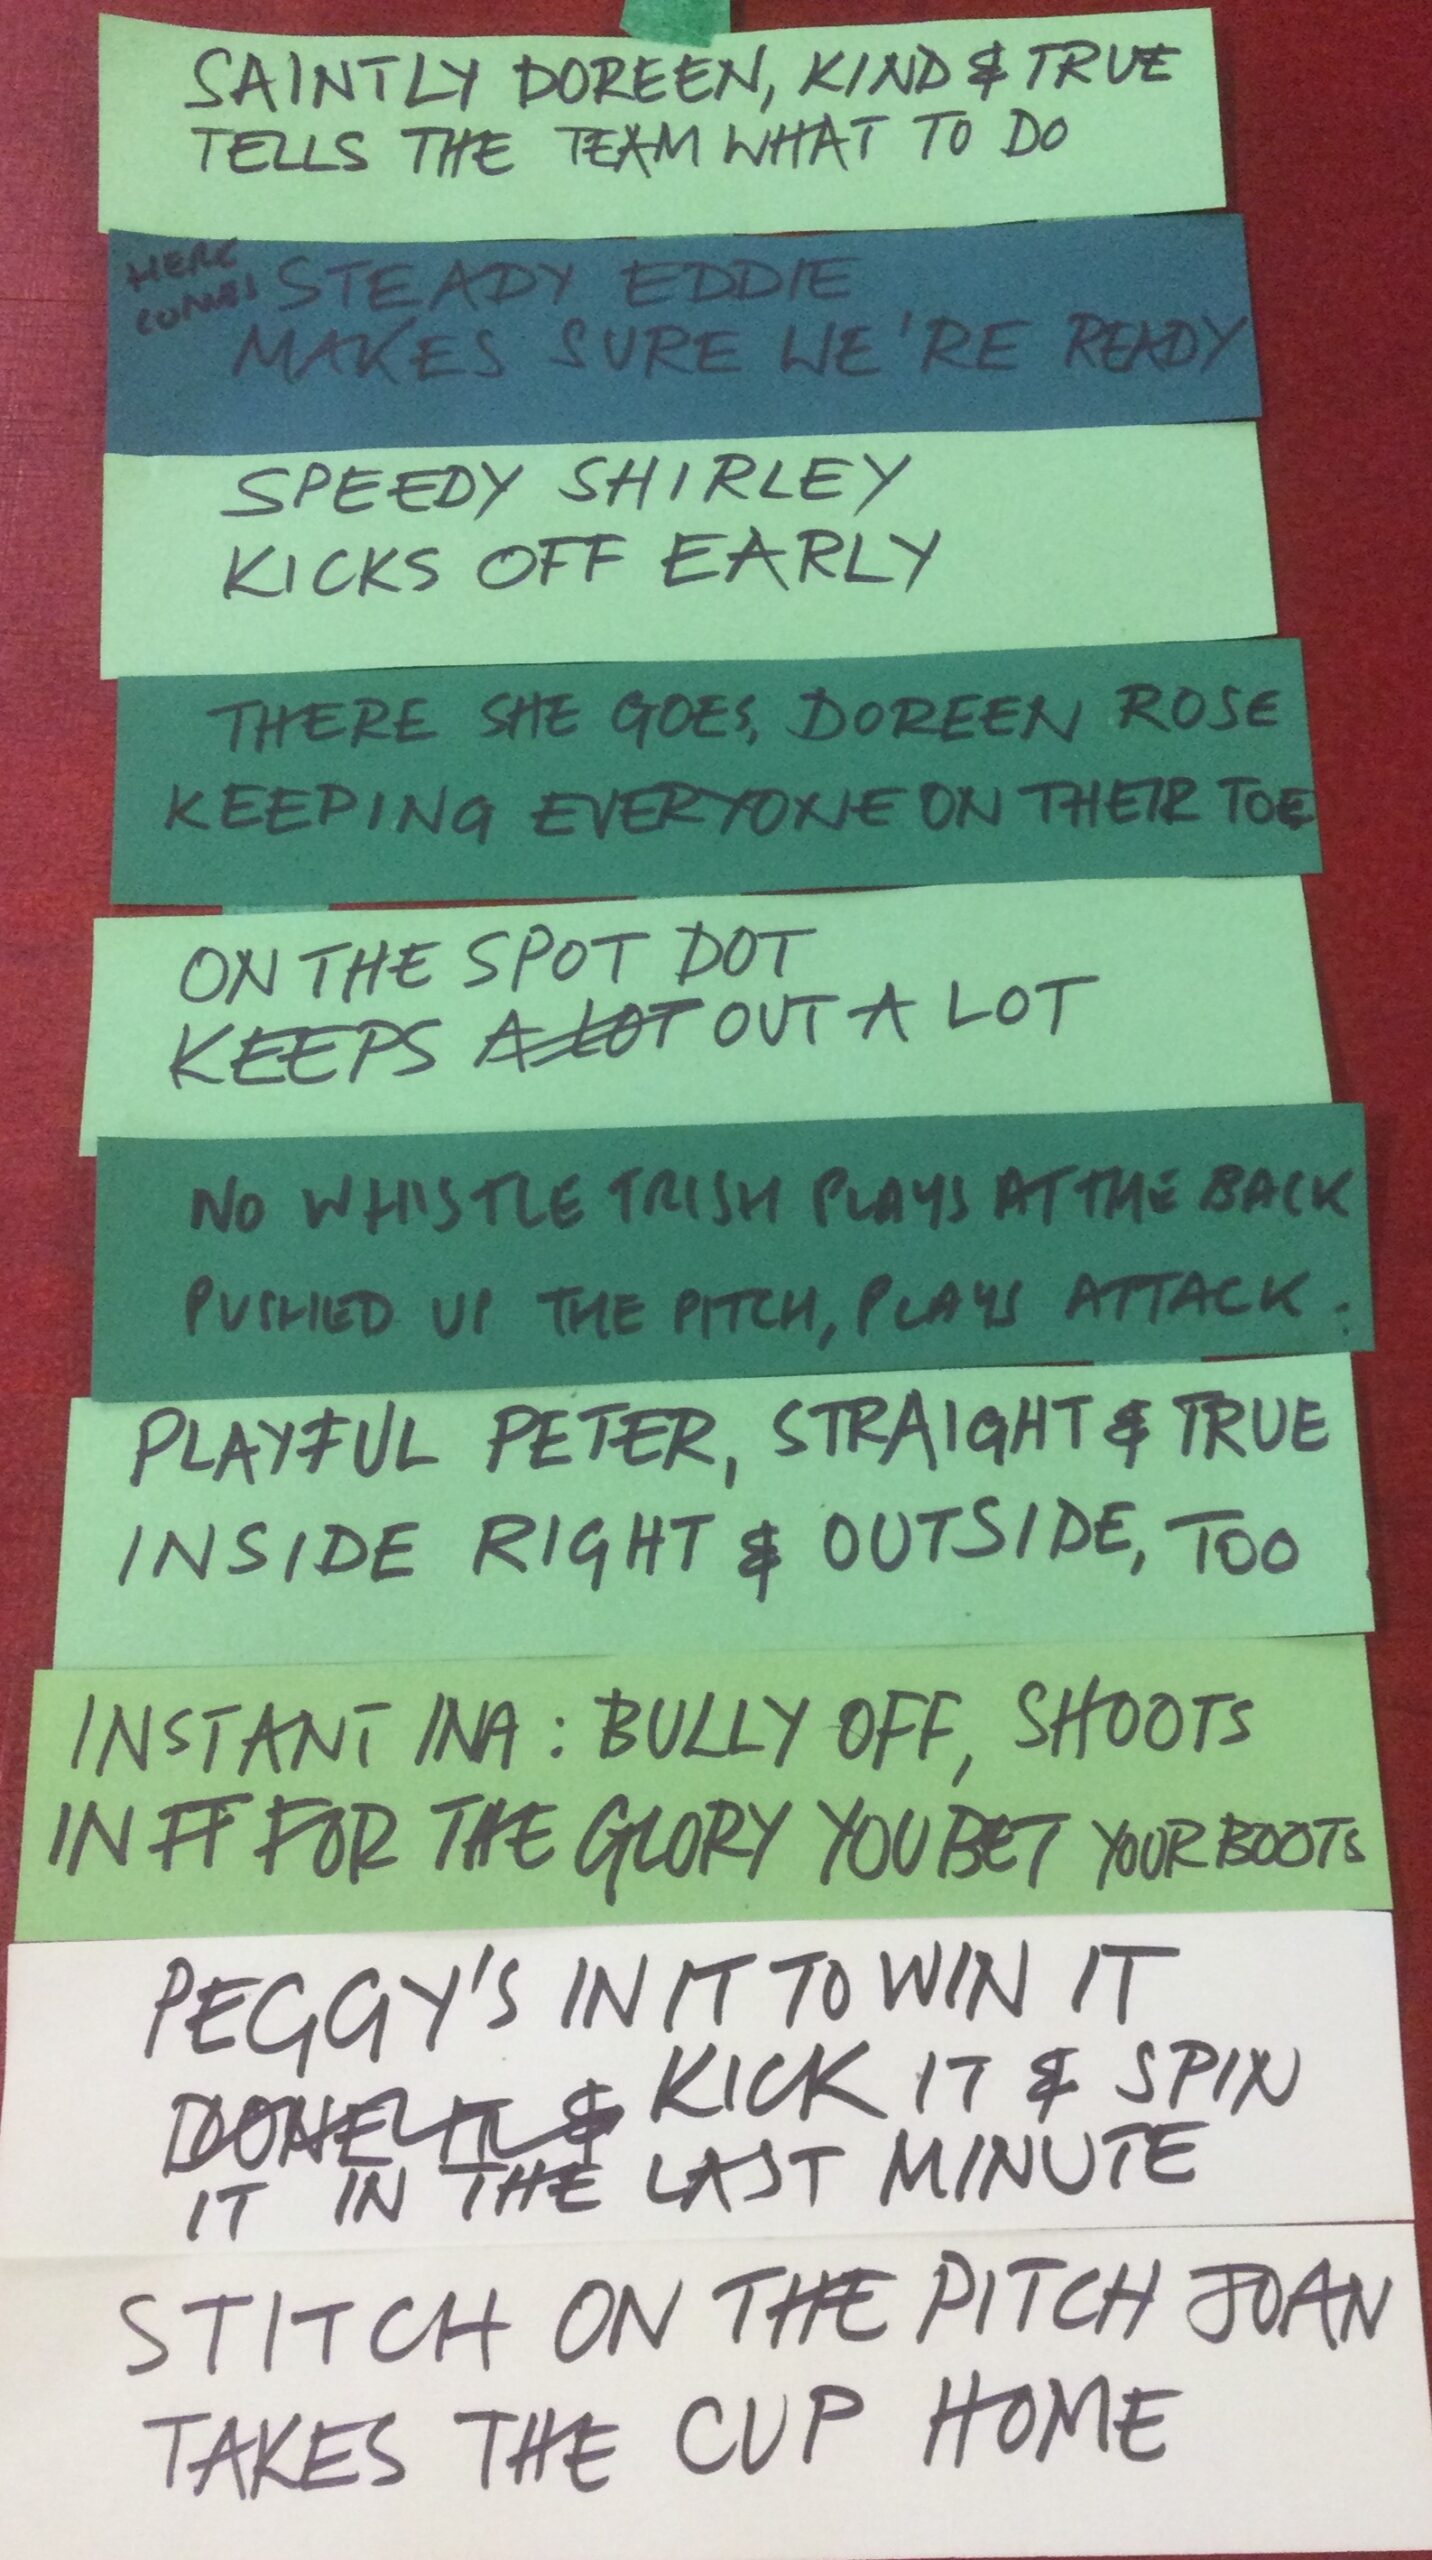 SAINTLY DOREEN, KIND & TRUE
TELLS THE TEAM WHAT TO DO
HERE COMES STEADY EDDIE
MAKES SURE WE'RE READY
SPEEDY SHIRLEY
KICKS OFF EARLY
THERE SHE GOES, DOREEN ROSE
KEEPING EVERYONE ON THEIR TOE
ON THE SPOT DOT
KEEPS A LOT OUT A LOT
NO WHISTLE TRISH PLAYS AT THE BACK
PUSHED UP THE PITCH, PLAYS ATTACK.
PLAYFUL PETER, STRAIGHT & TRUE
INSIDE RIGHT & OUTSIDE, TOO
INSTANT INA: BULLY OFF, SHOOTS
IN FF FOR THE GLORY YOU BET YOUR BOOTS
PEGGY'S IN IT TO WIN IT
KICK IT & SPIN
IT IN THE LAST MINUTE
STITCH ON THE PITCH JOAN
TAKES THE CUP HOME